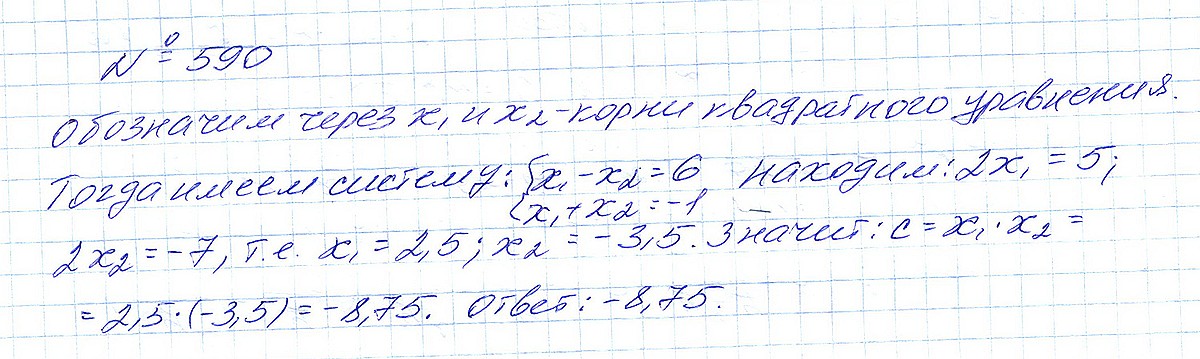 № 590
Обозначим через x₁ и x₂ - корни квадратного уравнения.
Тогда имеем систему: {x₁ - x₂ = 6 находим: 2x₁ = 5;
{x₁ + x₂ = -1
2x₂ = -7, т.е. x₁ = 2,5; x₂ = -3,5. Значит: c = x₁ · x₂ =
= 2,5 · (-3,5) = -8,75. Ответ: -8,75.